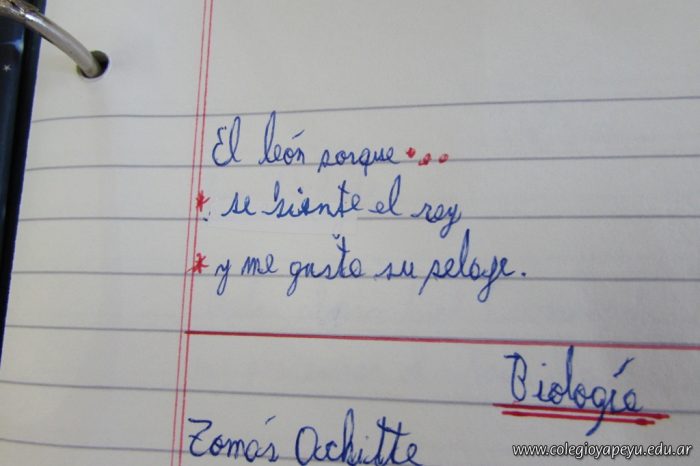 El león porque...
* se siente el rey
* y me gusta su pelaje.
Biología
Tomás Achitte
www.colegioyapeyu.edu.ar